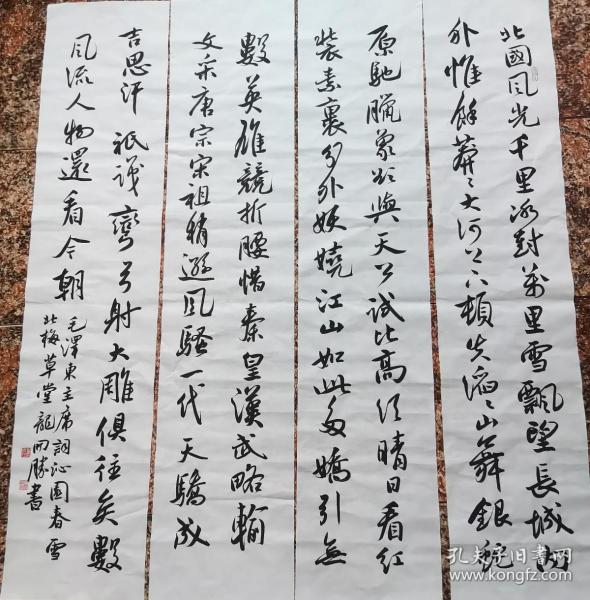 北國風光千里冰封萬里雪飄望長城內
外惟餘莽々大河上下頓失滔々山舞銀蛇
原馳臘象欲與天公試比高須晴日看紅
裝素裹分外妖嬈江山如此多嬌引無
數英雄競折腰惜秦皇漢武略輸
文采唐宗宋祖稍遜風騷一代天驕成
吉思汗祇識彎弓射大雕俱往矣數
風流人物還看今朝
毛澤東主席詞沁園春雪
北梅草堂龍
勝書
孔夫子旧书网
www.kongfz.com